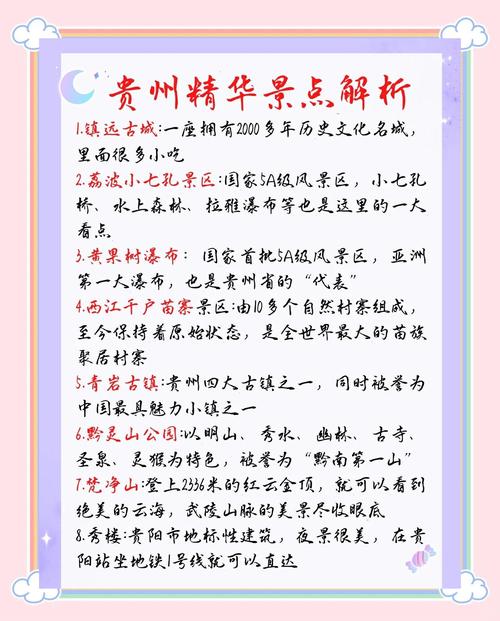 贵州精华景点解析
1.镇远古城:一座拥有2000多年历史文化名城，
里面很多小吃
2.荔波小七孔景区:国家5A级风景区，小七孔
桥、水上森林、拉雅瀑布等也是这里的一大
看点
3.黄果树瀑布：国家首批5A级风景区，亚洲
第一大瀑布，也是贵州省的“代表”
4.西江千户苗寨景区:由10多个自然村寨组成，
至今保持着原始状态，是全世界最大的苗族
聚居村寨
5.青岩古镇:贵州四大古镇之一，同时被誉为
中国最具魅力小镇之一
6.黔灵山公园:以明山、秀水、幽林、古寺、
圣泉、灵猴为特色，被誉为“黔南第一山”
7.梵净山:登上2336米的红云金顶，就可以看到
绝美的云海，武陵山脉的美景尽收眼底
8.秀楼:贵阳市地标性建筑，夜景很美，在贵
阳站坐地铁1号线就可以直达